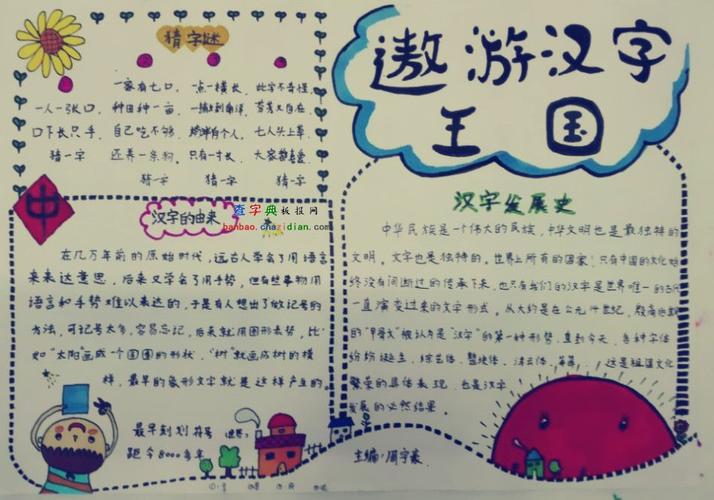 遨游汉字
王国
猜字谜
一家有七口， 一点一横长， 此字不奇怪，
一人一张口， 种田种一亩， 一撇到南洋，
口下长只手， 自己吃不够， 七人头上草，
猜一字 还养一条狗。 只有一寸长。 大家都喜爱。
猜一字 猜一字 猜一字
中
汉字的由来
查字典板报网
banbao.chazidian.com
在几万年前的原始时代，远古人学会了用语言
来表达意思，后来又学会了用手势，但有些事物用
语言和手势难以表达的，于是有人想出了做记号的
方法，可记号太多，容易忘记，后来就用图形表势，比
如“太阳”画成一个圆圆的形状，“树”就画成树的模
样，最早的象形文字就是这样产生的。
最早刻划符号
距今8000多年
汉字发展史
中华民族是一个伟大的民族，中华文明也是最独特的
文明。文字也是独特的。世界上所有的国家！只有中国的文化始
终没有间断过的传承下来，也只有我们的汉字是世界唯一的古
一直演变过来的文字形式。从大约是在公元 世纪，殷商
的“甲骨文”被认为是“汉字”的第一种形势，直到今天，各种字体
纷纷诞生 这是祖国文化
繁荣的具体表现，也是汉字
发展的必然结果。
主编：周宇豪